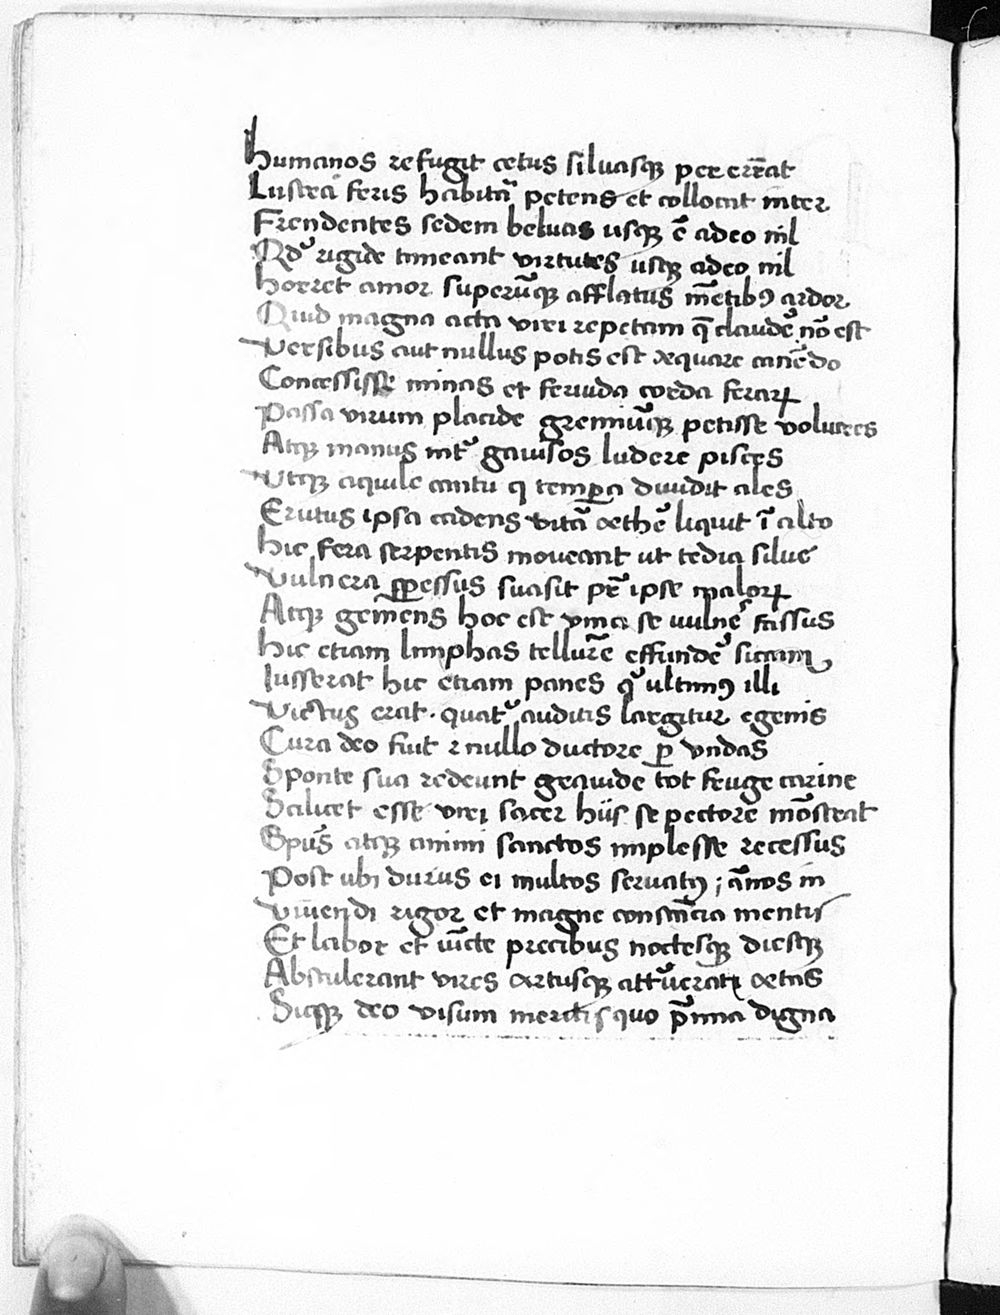 Humanos refugit cetus siluasqꝫ pererrāt
Lustra feris habitā petens et collocat inter
Frendentes sedem beluas usqꝫ ē adeo nil
Qd᷑ rigide timeant virtutes usqꝫ adeo nil
horret amor superūqꝫ afflatus mētibꝰ ardor
Quid magna acta viri repetam q̄ claudē nō est
Versibus aut nullus potis est æquare canēdo
Concessisse minas et feruida corda ferarꝝ
Passa virum placide gremiūqꝫ petisse volucres
Atqꝫ manus int᷑ gauisos ludere pisces
Vtqꝫ aquile cantu q tempꝑa diuidit ales
Erutus ipsa cadens vitā æthe᷑ liquit ī alto
hic fera serpentis moueant ut tedia silue
Vulnera ꝓpessus suasit pr̄ ipse malorꝝ
Atqꝫ gemens hoc est vina se uulne᷑ fassus
hic etiam limphas tellurē effunde᷑ siccam
Iusserat hic etiam panes q᷑ ultimꝰ illi
Victus erat · quat᷑ auditis largitur egenis
Cura deo fuit ꝛ nullo ductore ꝑ vndas
Sponte sua redeunt grauide tot fruge carine
Scilicet esse viri sacer hiis se pectore mōstrat
Spūs atqꝫ animi sanctos implesse recessus
Post ubi durus ei multos seruatꝰ ; ānos in
Viuendi rigor et magne constācia mentis
Et labor et iūcte precibus noctesqꝫ diesqꝫ
Abstulerant vires artusqꝫ att᷑uerat ætas
Sicqꝫ deo visum meritis quo p̄mia digna